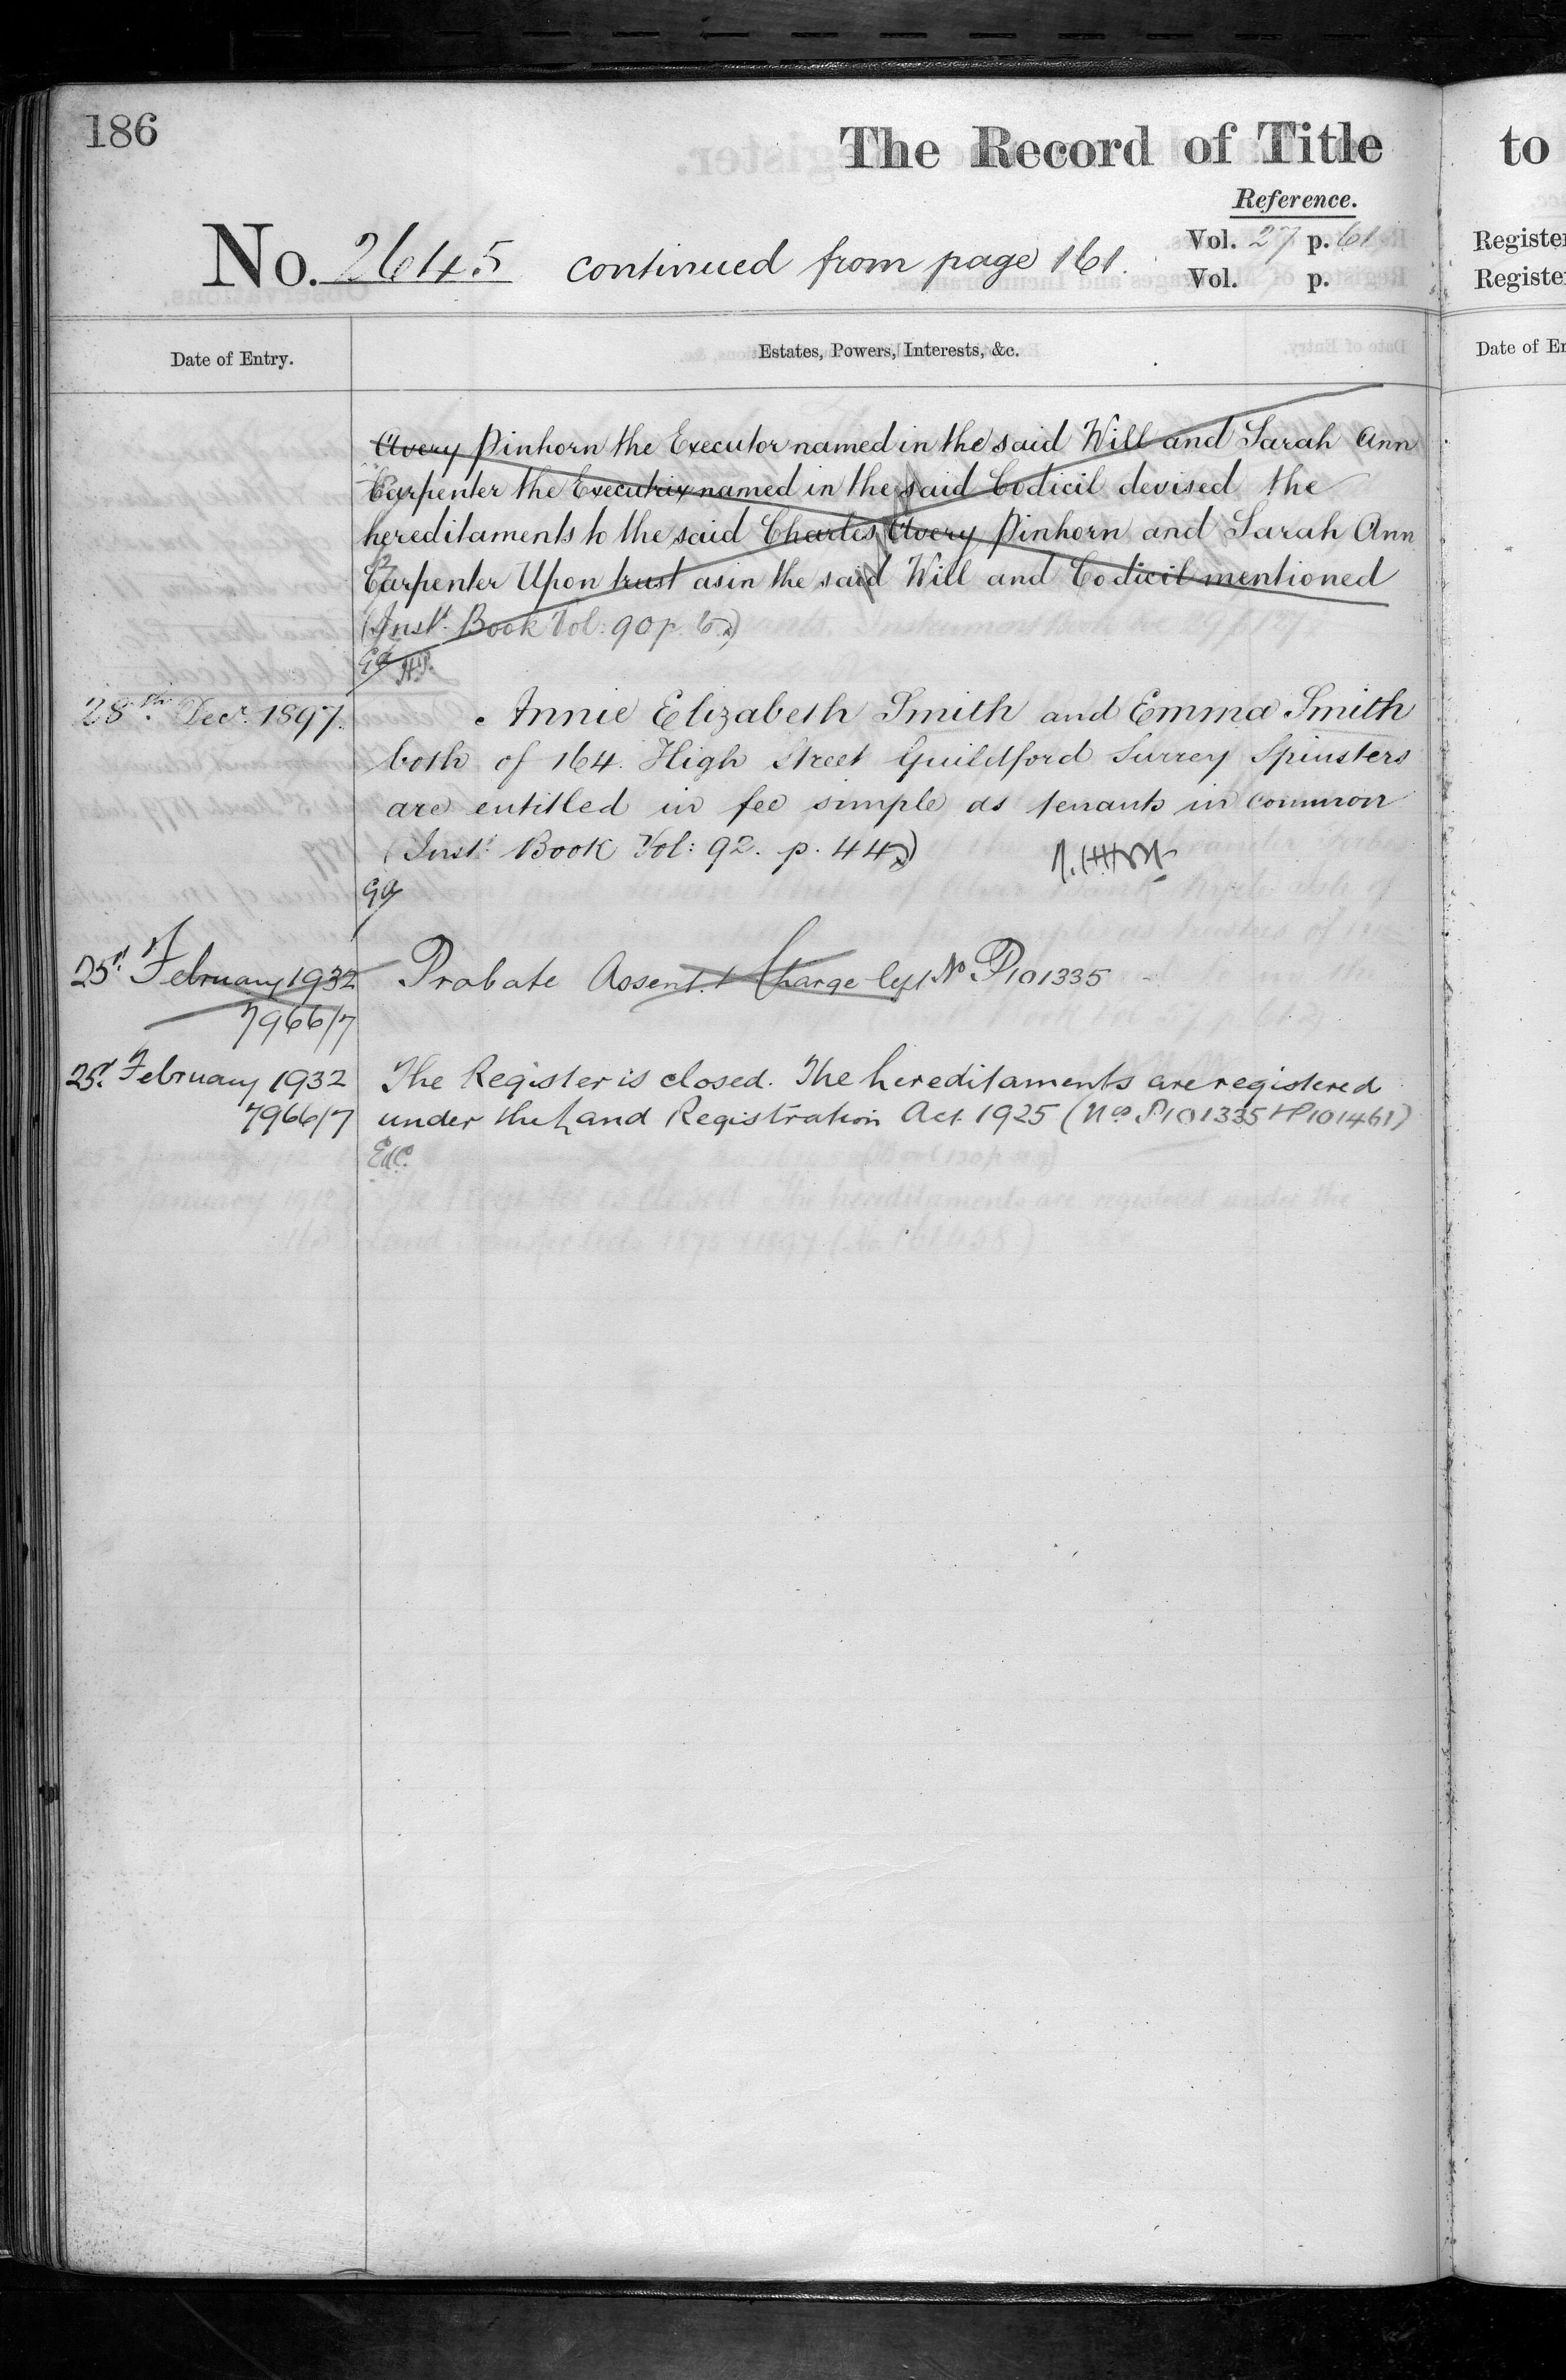 186
The Record of Title
to
Reference.
No. 2645 continued from page 161.
Vol. 27 p. 61
Vol. p.
Register
Register
Date of Entry.
Estates, Powers, Interests, &c.
Date of En
Avery Pinhorn the Executor named in the said Will and Sarah Ann
Carpenter the Executrix named in the said Codicil devised the
hereditaments to the said Charles Avery Pinhorn and Sarah Ann
Carpenter Upon trust as in the said Will and Codicil mentioned
(Inst. Book Vol: 90 p.
28th Decr. 1897. Annie Elizabeth Smith and Emma Smith
both of 164. High Street Guildford Surrey Spinsters
are entitled in fee simple as tenants in common
(Inst. Book Vol: 92. p. 44
25 February 1932 Probate Assent & Charge left No. P101335
7966/7
25 February 1932 The Register is closed. The hereditaments are registered
7966/7 under the Land Registration Act 1925 (Nos P101335 & P101461)